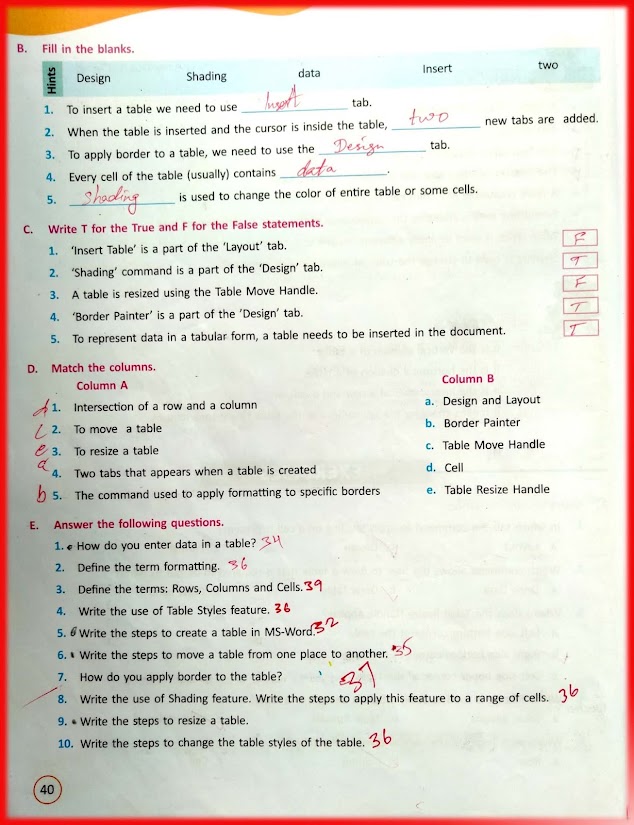 B. Fill in the blanks.
Hints Design Shading data Insert two
1. To insert a table we need to use Insert tab.
2. When the table is inserted and the cursor is inside the table, two new tabs are added.
3. To apply border to a table, we need to use the Design tab.
4. Every cell of the table (usually) contains data.
5. Shading is used to change the color of entire table or some cells.
C. Write T for the True and F for the False statements.
1. 'Insert Table' is a part of the 'Layout' tab. F
2. 'Shading' command is a part of the 'Design' tab. T
3. A table is resized using the Table Move Handle. F
4. 'Border Painter' is a part of the 'Design' tab. T
5. To represent data in a tabular form, a table needs to be inserted in the document. T
D. Match the columns.
Column A Column B
d 1. Intersection of a row and a column a. Design and Layout
c 2. To move a table b. Border Painter
e 3. To resize a table c. Table Move Handle
a 4. Two tabs that appears when a table is created d. Cell
b 5. The command used to apply formatting to specific borders e. Table Resize Handle
E. Answer the following questions.
1. How do you enter data in a table? 34
2. Define the term formatting. 36
3. Define the terms: Rows, Columns and Cells. 39
4. Write the use of Table Styles feature. 36
5. Write the steps to create a table in MS-Word. 32
6. Write the steps to move a table from one place to another. 35
7. How do you apply border to the table? 37
8. Write the use of Shading feature. Write the steps to apply this feature to a range of cells. 36
9. Write the steps to resize a table.
10. Write the steps to change the table styles of the table. 36
40